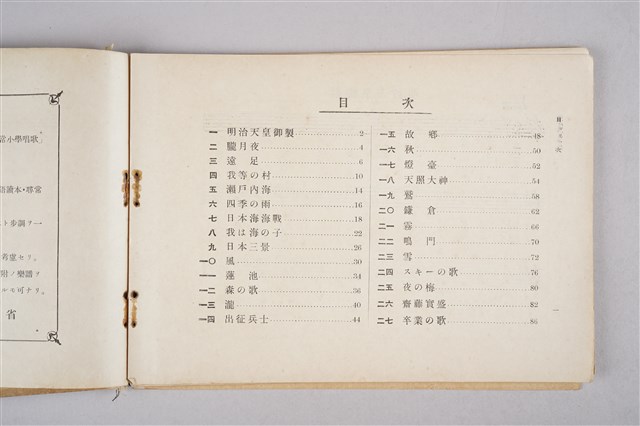 常小學唱歌」
省
目次
一 明治天皇御製 2
二 朧月夜 4
三 遠足 6
四 我等の村 10
五 瀬戸內海 14
六 四季の雨 16
七 日本海海戰 18
八 我は海の子 22
九 日本三景 26
一〇 風 30
一一 蓮池 34
一二 森の歌 36
一三 瀧 40
一四 出征兵士 44
一五 故鄕 48
一六 秋 50
一七 燈臺 52
一八 天照大神 54
一九 鷲 58
二〇 鎌倉 62
二一 霧 66
二二 鳴門 70
二三 雪 72
二四 スキーの歌 76
二五 夜の梅 80
二六 齋藤實盛 82
二七 卒業の歌 86
目次
一